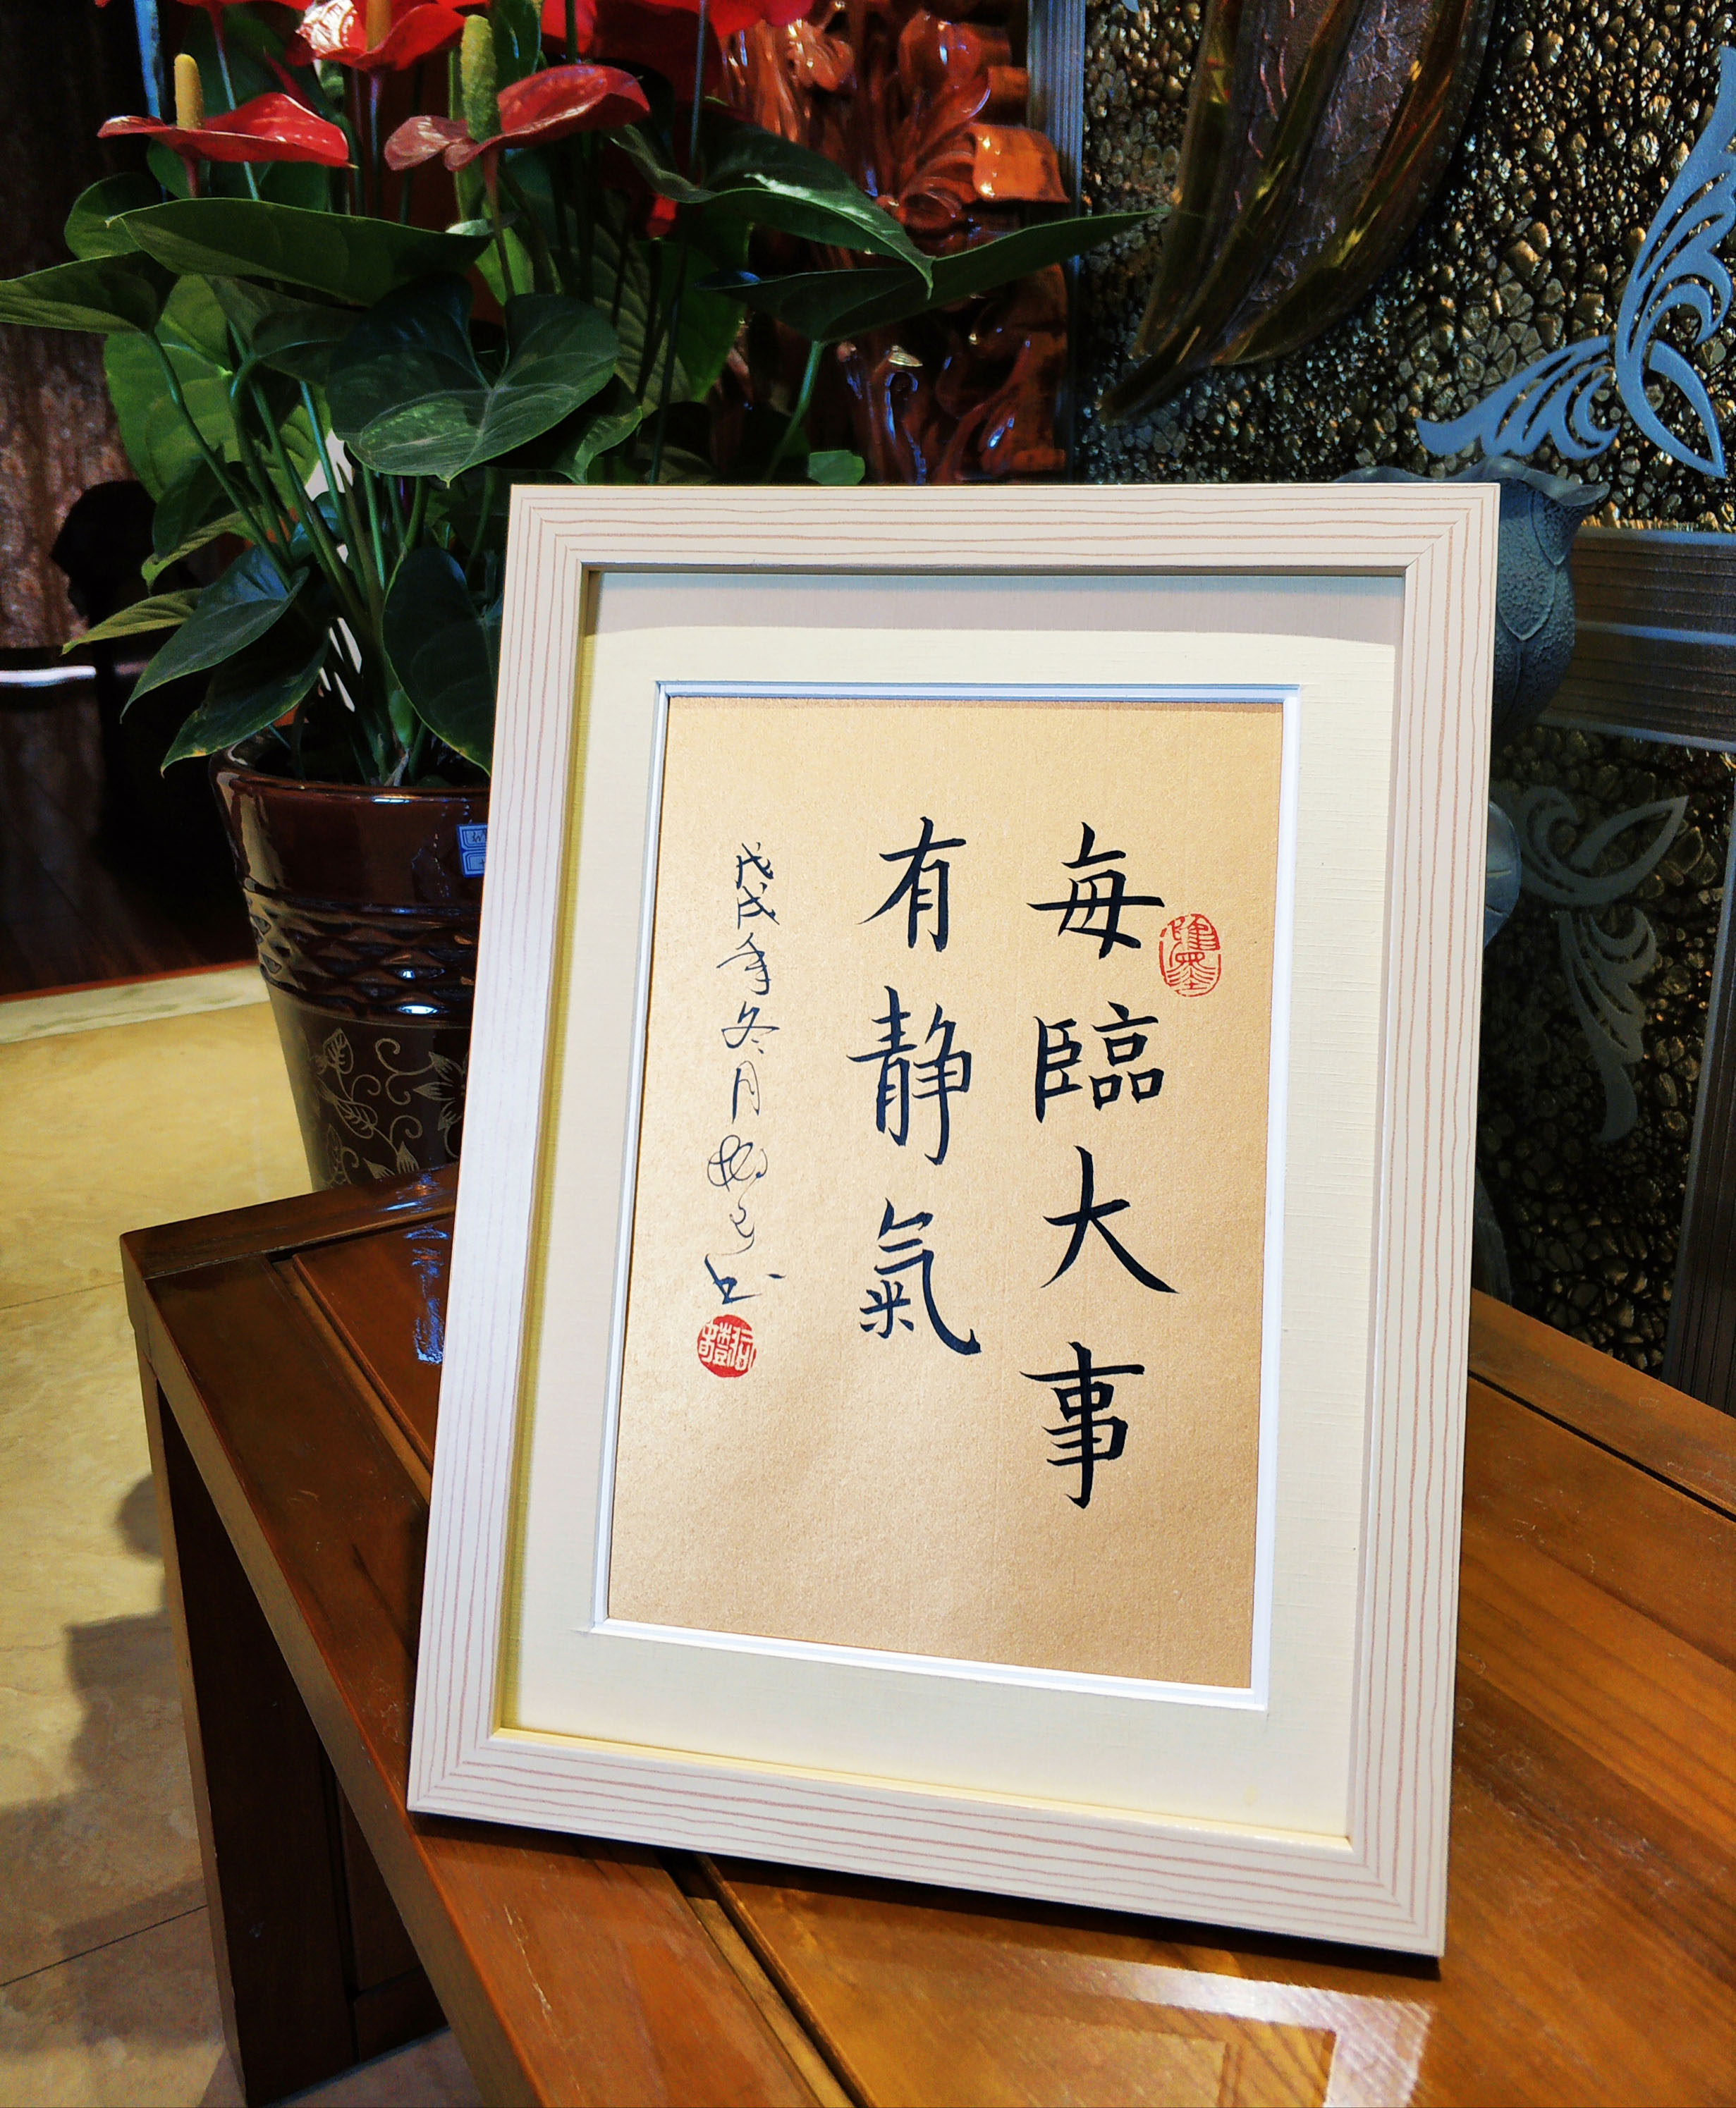 每臨大事
有静氣
戊戌年冬月
书